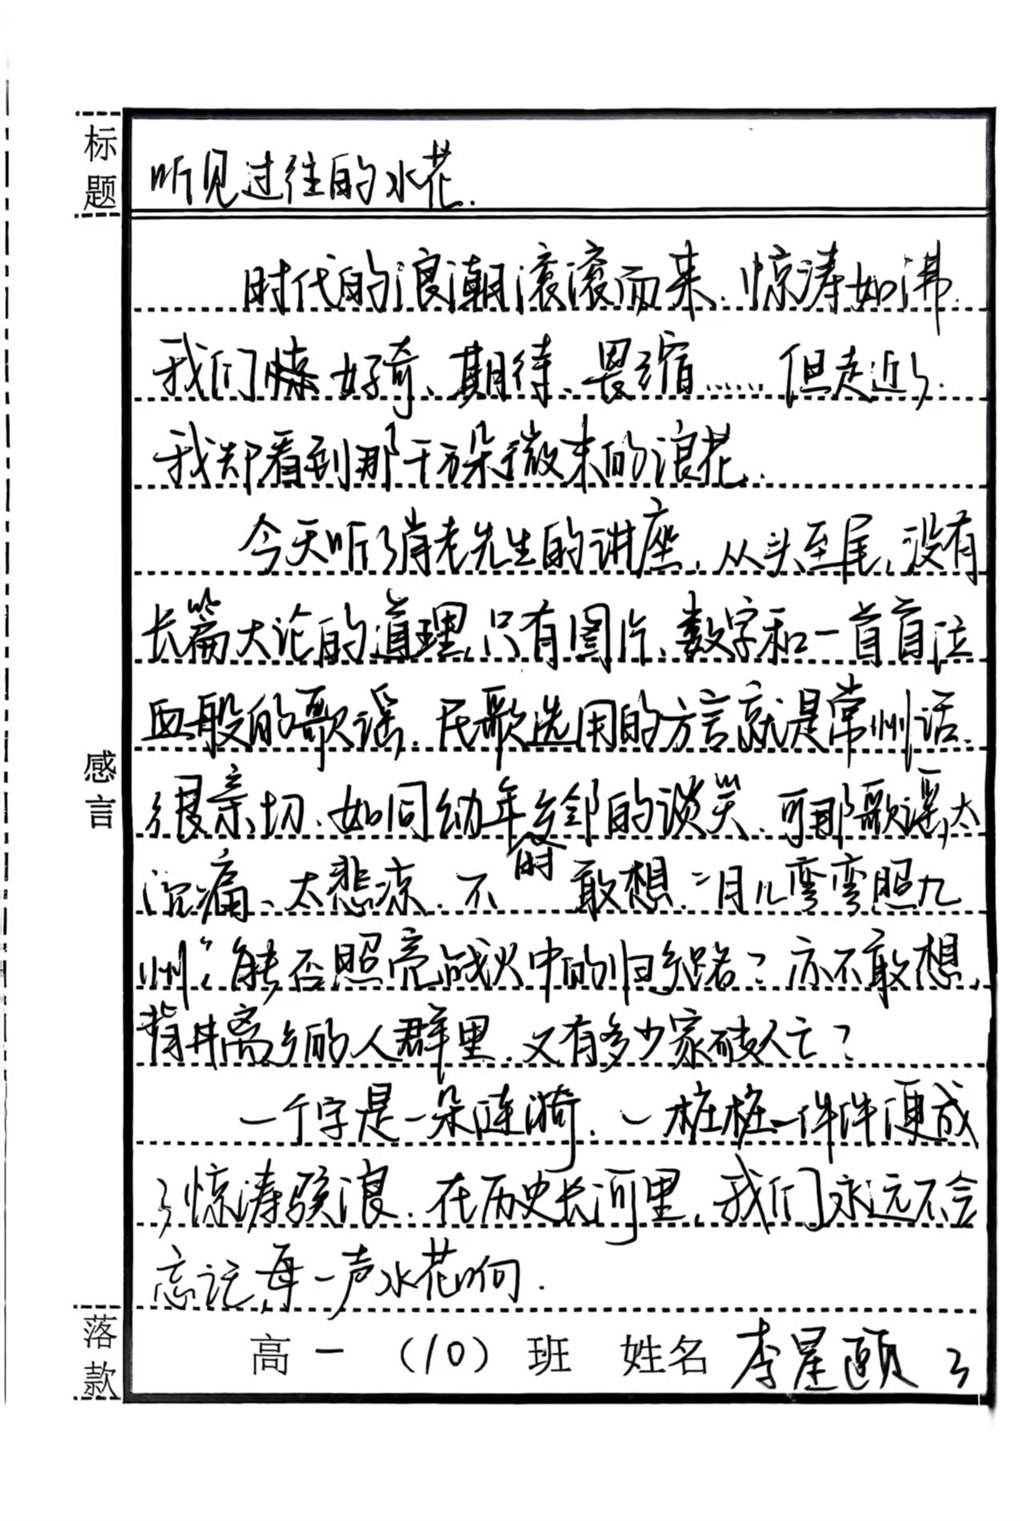 标题
听见过往的水花.
时代的浪潮滚滚而来.惊涛如沸.
我们惊好奇、期待、畏缩……但走近了.
我却看到那千万朵微末的浪花.
今天听了蒋老先生的讲座.从头至尾,没有
长篇大论的道理.只有图片、数字和一首首泣
血般的歌谣.民歌选用的方言就是常州话.
感言
很亲切.如同幼年时乡邻的谈笑.可那歌谣,太
沉痛、太悲凉.不敢想."月儿弯弯照九
州"能否照亮战火中的归乡路?亦不敢想,
背井离乡的人群里.又有多少家破人亡?
一个字是一朵涟漪.一桩桩一件件便成
了惊涛骇浪.在历史长河里.我们永远不会
忘记,每一声水花响.
落款
高一(10)班 姓名 李星颐 3